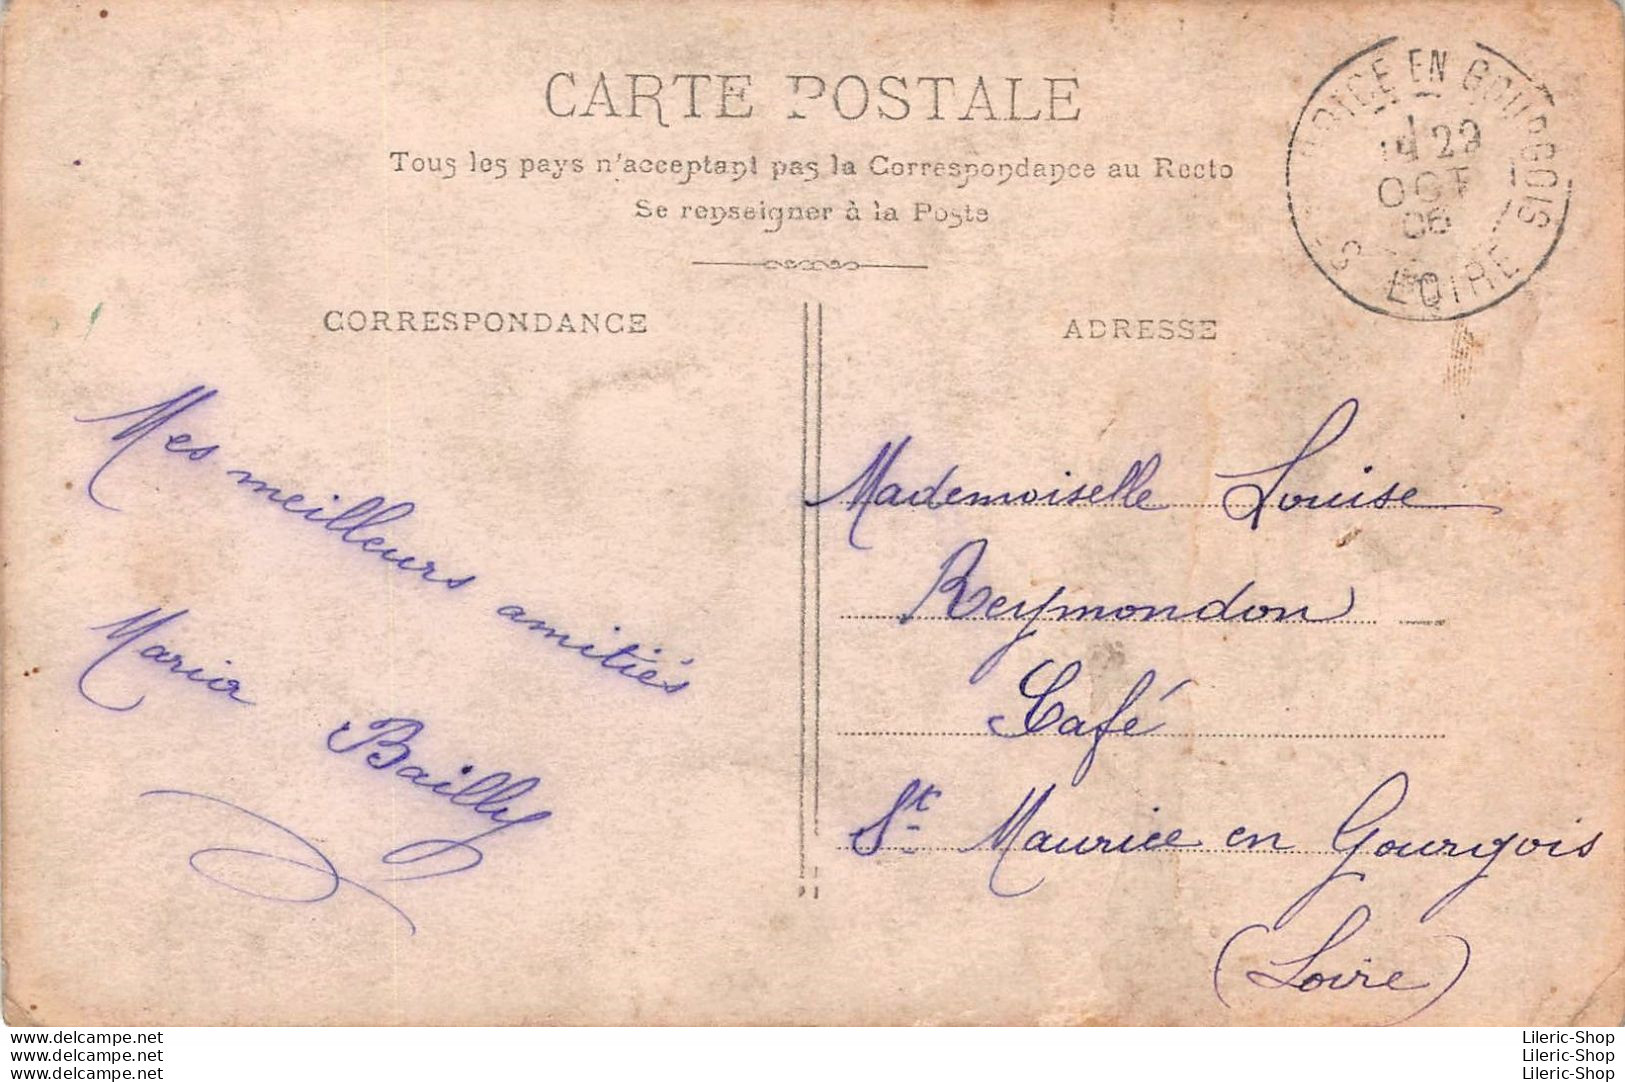 CARTE POSTALE
Tous les pays n'acceptant pas la Correspondance au Recto
Se renseigner à la Poste
EN GOURGOIS
29
OCT
06
LOIRE
CORRESPONDANCE
Mes meilleurs amitiés
Maria Bailly
ADRESSE
Mademoiselle Louise
Reymondon
Café
St Maurice en Gourgois
(Loire)
www.delcampe.net
www.delcampe.net
www.delcampe.net
Lileric-Shop
Lileric-Shop
Lileric-Shop